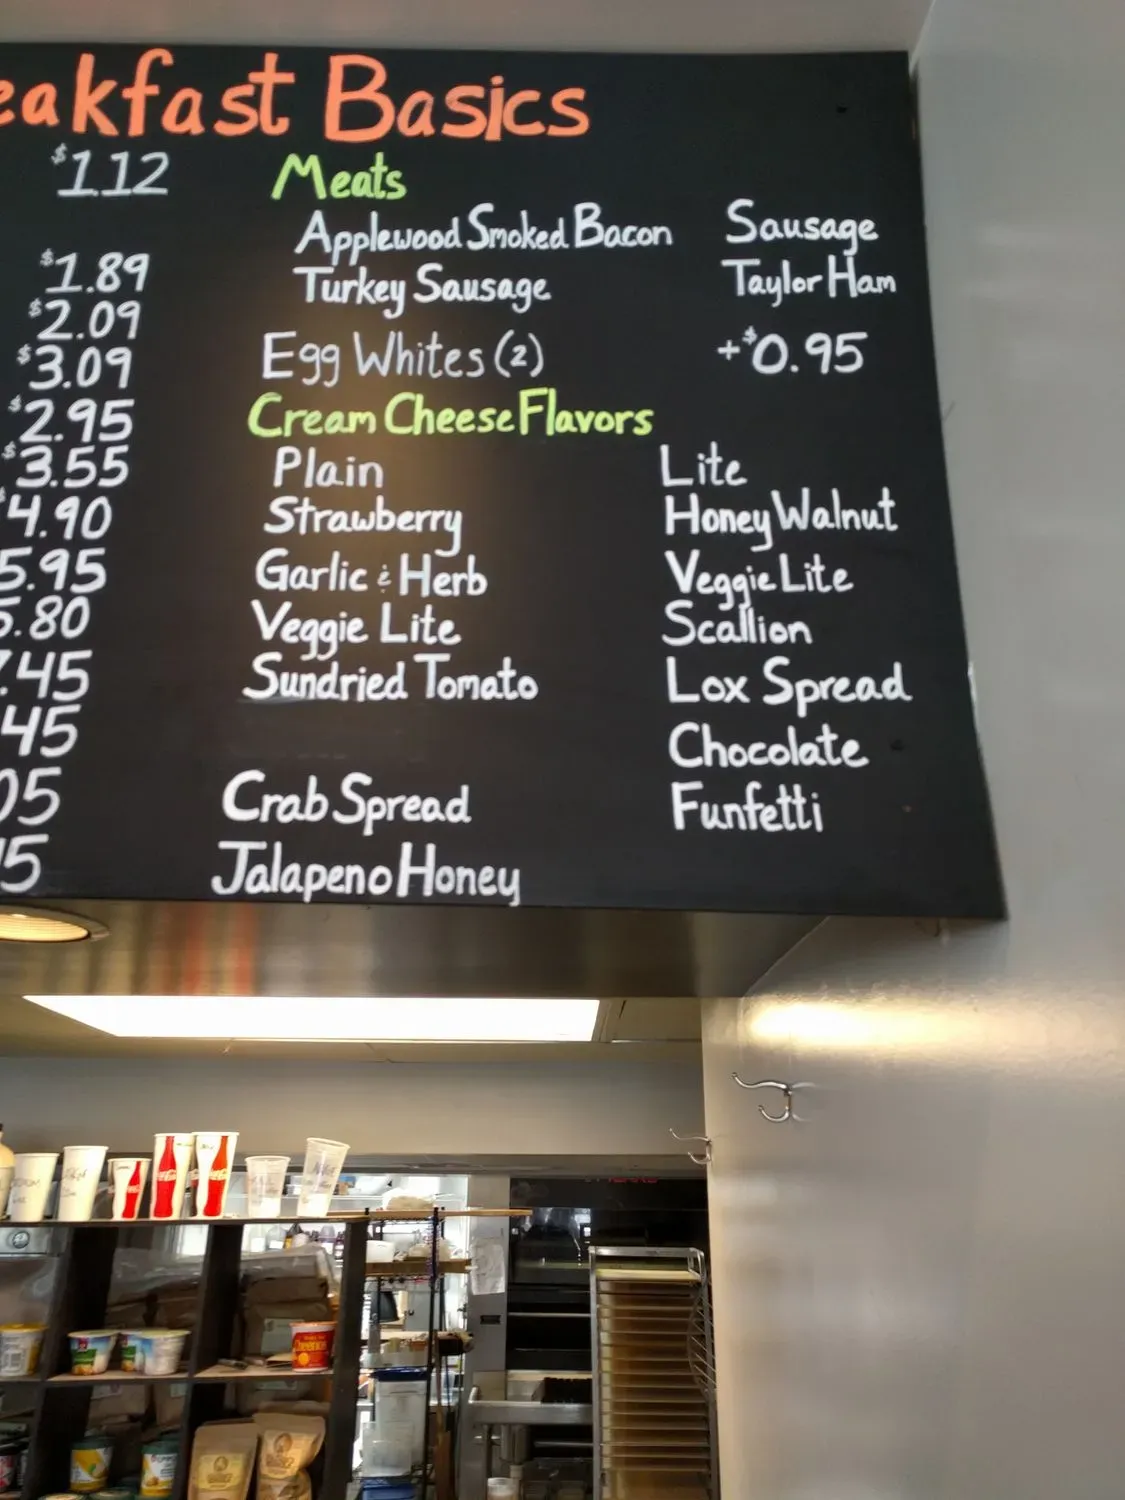 eakfast Basics
$1.12 Meats
Applewood Smoked Bacon Sausage
$1.89 Turkey Sausage Taylor Ham
$2.09
$3.09 Egg Whites (2) +$0.95
$2.95 Cream Cheese Flavors
$3.55 Plain Lite
$4.90 Strawberry Honey Walnut
5.95 Garlic & Herb Veggie Lite
5.80 Veggie Lite Scallion
.45 Sundried Tomato Lox Spread
45 Chocolate
05 Crab Spread Funfetti
5 Jalapeno Honey